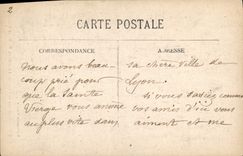 2
CARTE POSTALE
CORRESPONDANCE
ADRESSE
nous avons beau-
coup prié pour
que la Sainte
Vierge vous amène
au plus vite dans
sa chère ville de
Lyon.
si vous saviez comme
vos amies d'ici vous
aiment et me